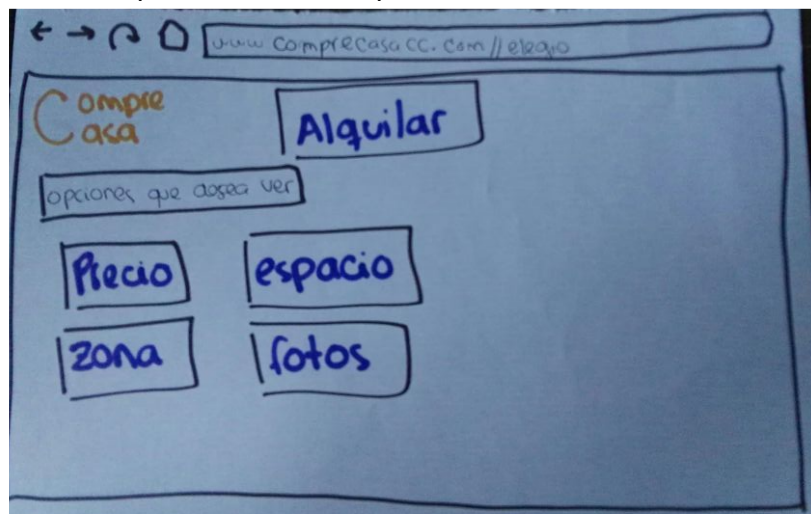 www comprecasacc.com//elegio
Compre
Casa
Alquilar
opciones que desea ver
Precio
espacio
zona
fotos